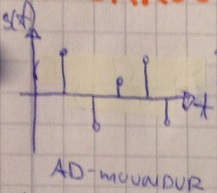 s(t)
t
AD-MUUNDUR